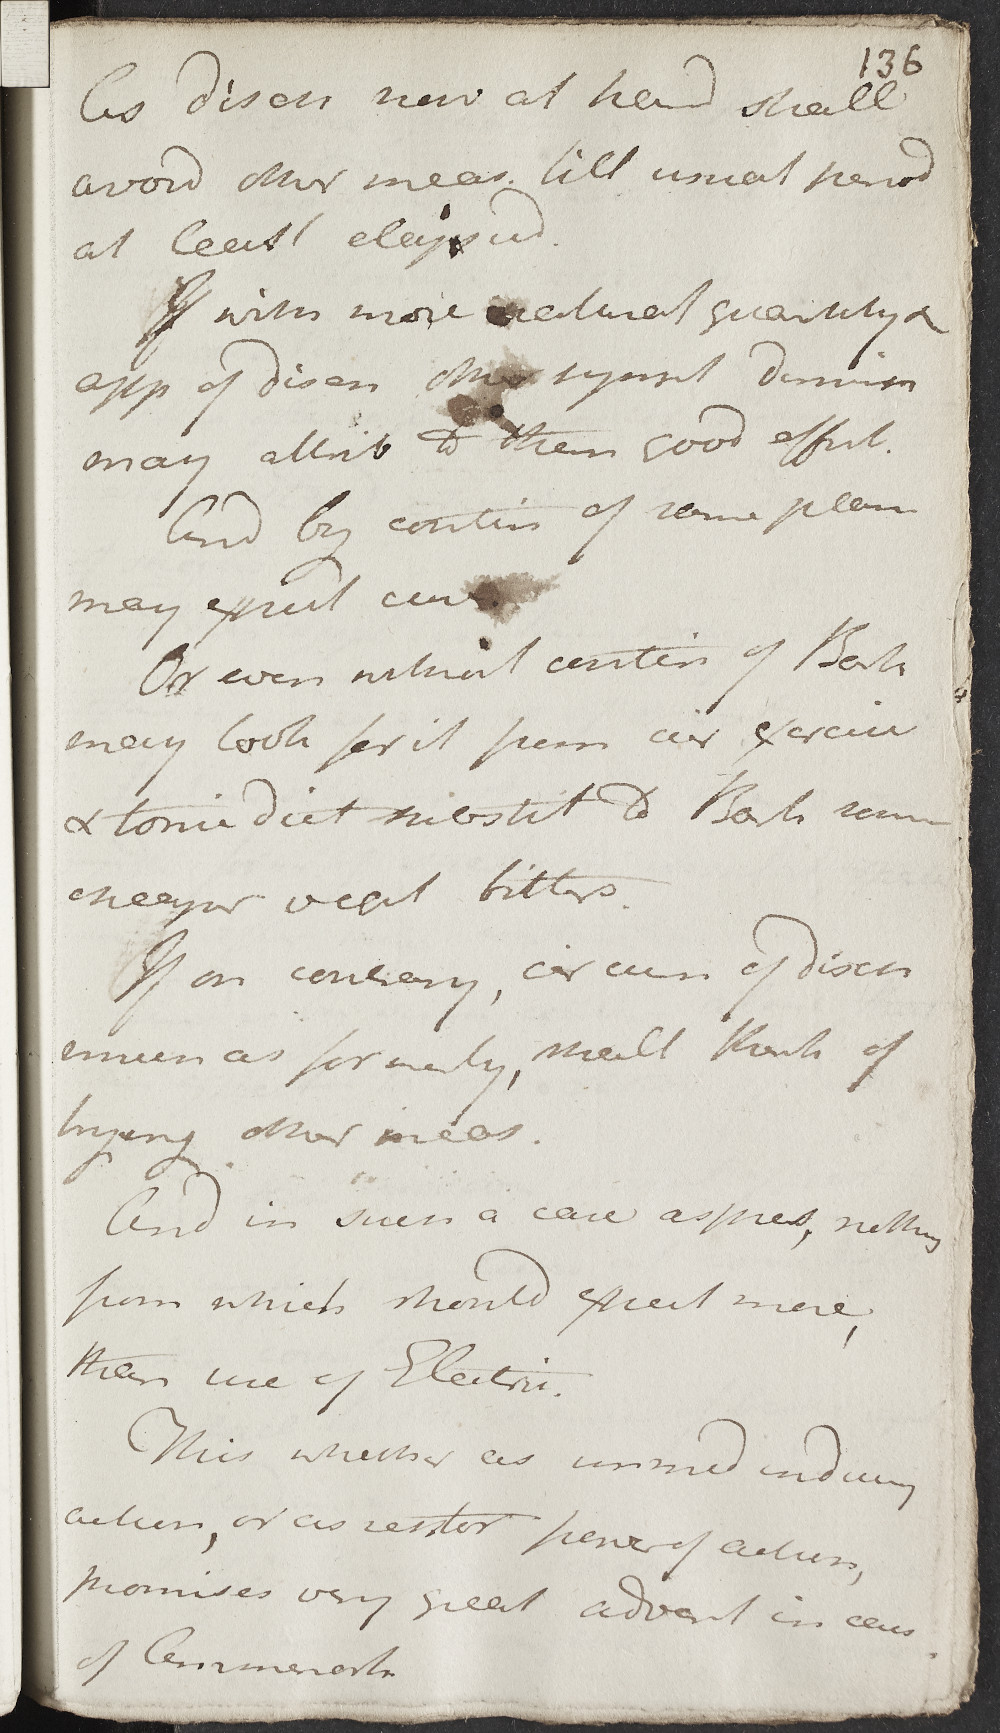 136
As disch now at hand shall
avoid other meas. till usual period
at least elapsed.
If with more natural quantity &
app of disch other sympt dimin
may attrib to them good effect.
And by contin of same plan
may expect cure.
Or even without contin of Bark
may look for it from air exercise
& tonic diet substit to Bark some
cheaper veget bitters.
If on contrary, circum of disch
ensue as formerly, shall think of
trying other meas.
And in such a case as pres, nothing
from which should expect more,
than use of Electric.
This whether as immed inducing
action, or as restor power of action,
promises very great advant in cases
of Amenorrh